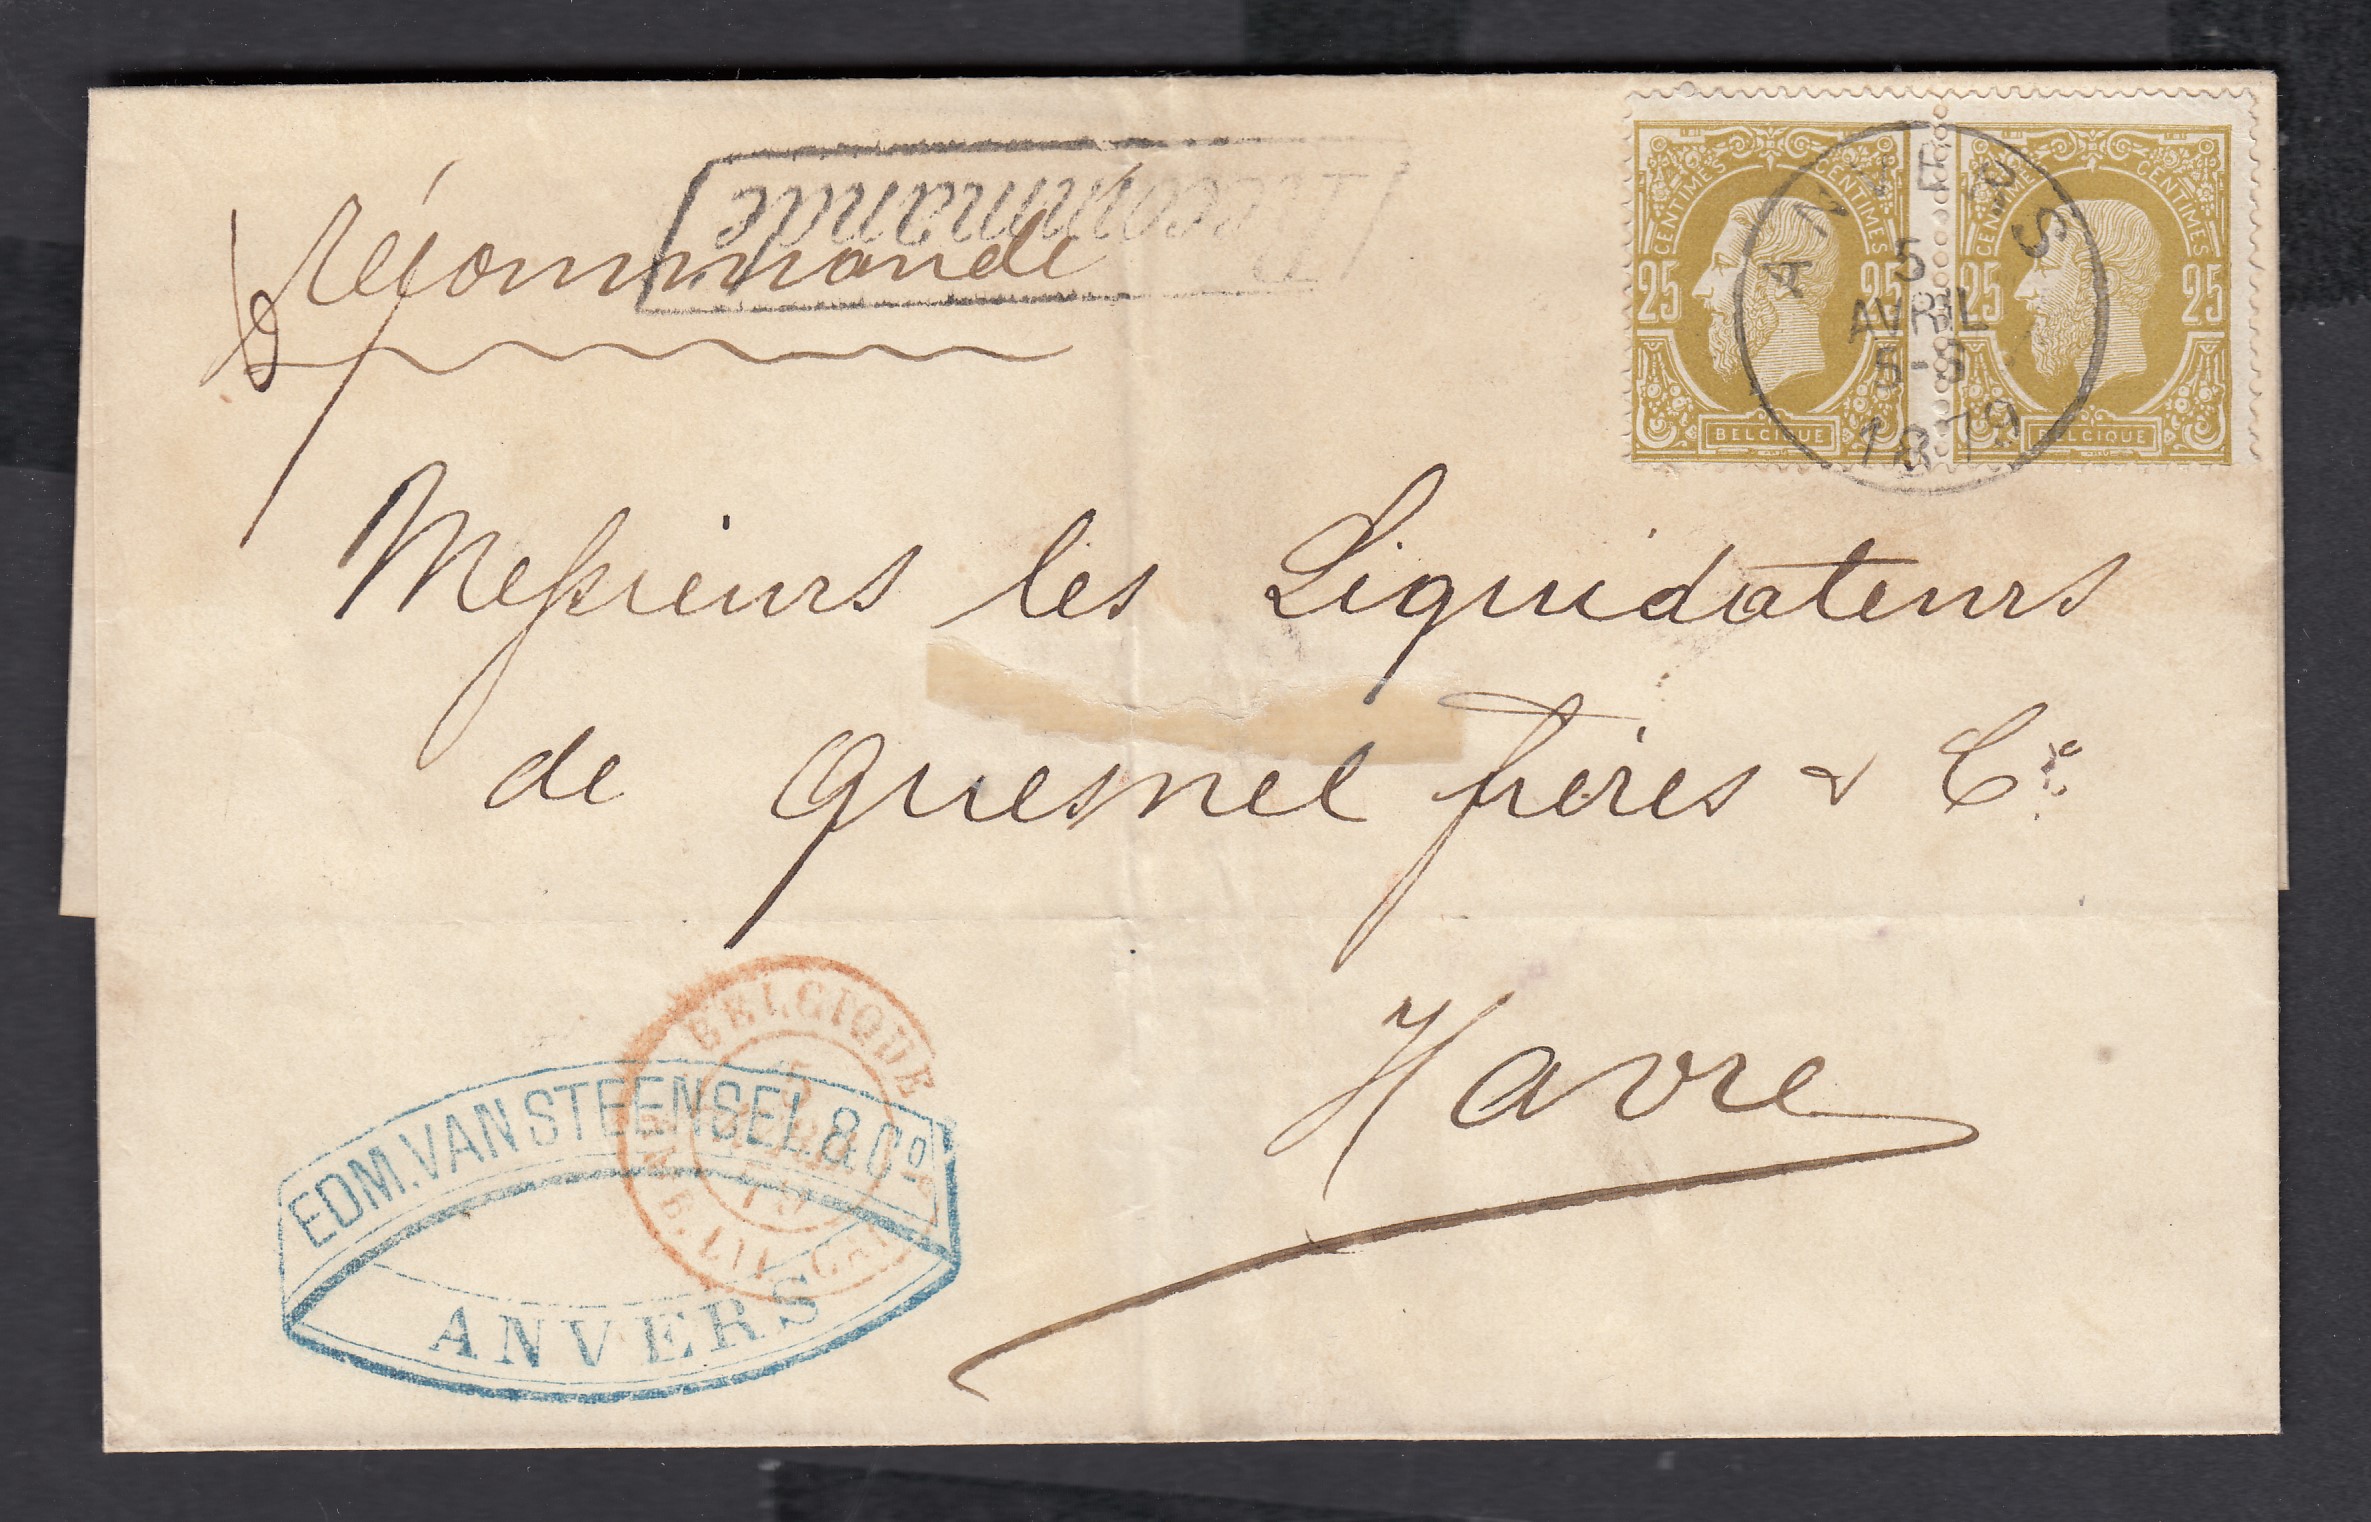 Recommandé
recommandé
CENTIMES CENTIMES
25 25
BELGIQUE
CENTIMES CENTIMES
25 25
BELGIQUE
ANVERS
5
AVRIL
5-8
1879
Messieurs les Liquidateurs
de Quesnel frères & Cie
Havre
BELGIQUE
5
79
EDM. VAN STEENSEL & Co
ANVERS